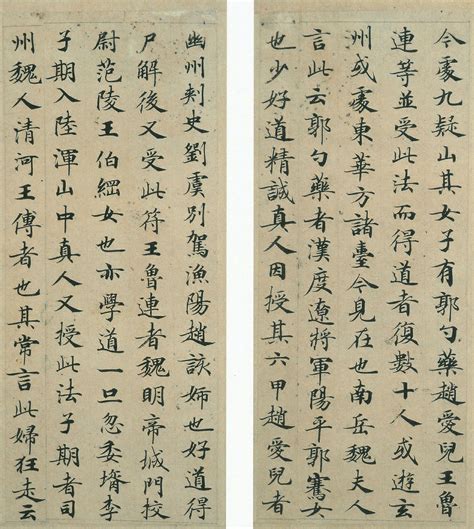 今處九疑山其女子有郭勺藥趙愛兒王魯
連等並受此法而得道者復數十人或遊玄
州或處東華方諸臺今見在也南岳魏夫人
言此云郭勺藥者漢度遼將軍陽平郭騫女
也少好道精誠真人因授其六甲趙愛兒者
幽州刾史劉虞別駕漁陽趙該姉也好道得
尸解後又受此符王魯連者魏明帝城門校
尉范陵王伯綱女也亦學道一旦忽委壻李
子期入陸渾山中真人又授此法子期者司
州魏人清河王傳者也其常言此婦狂走云